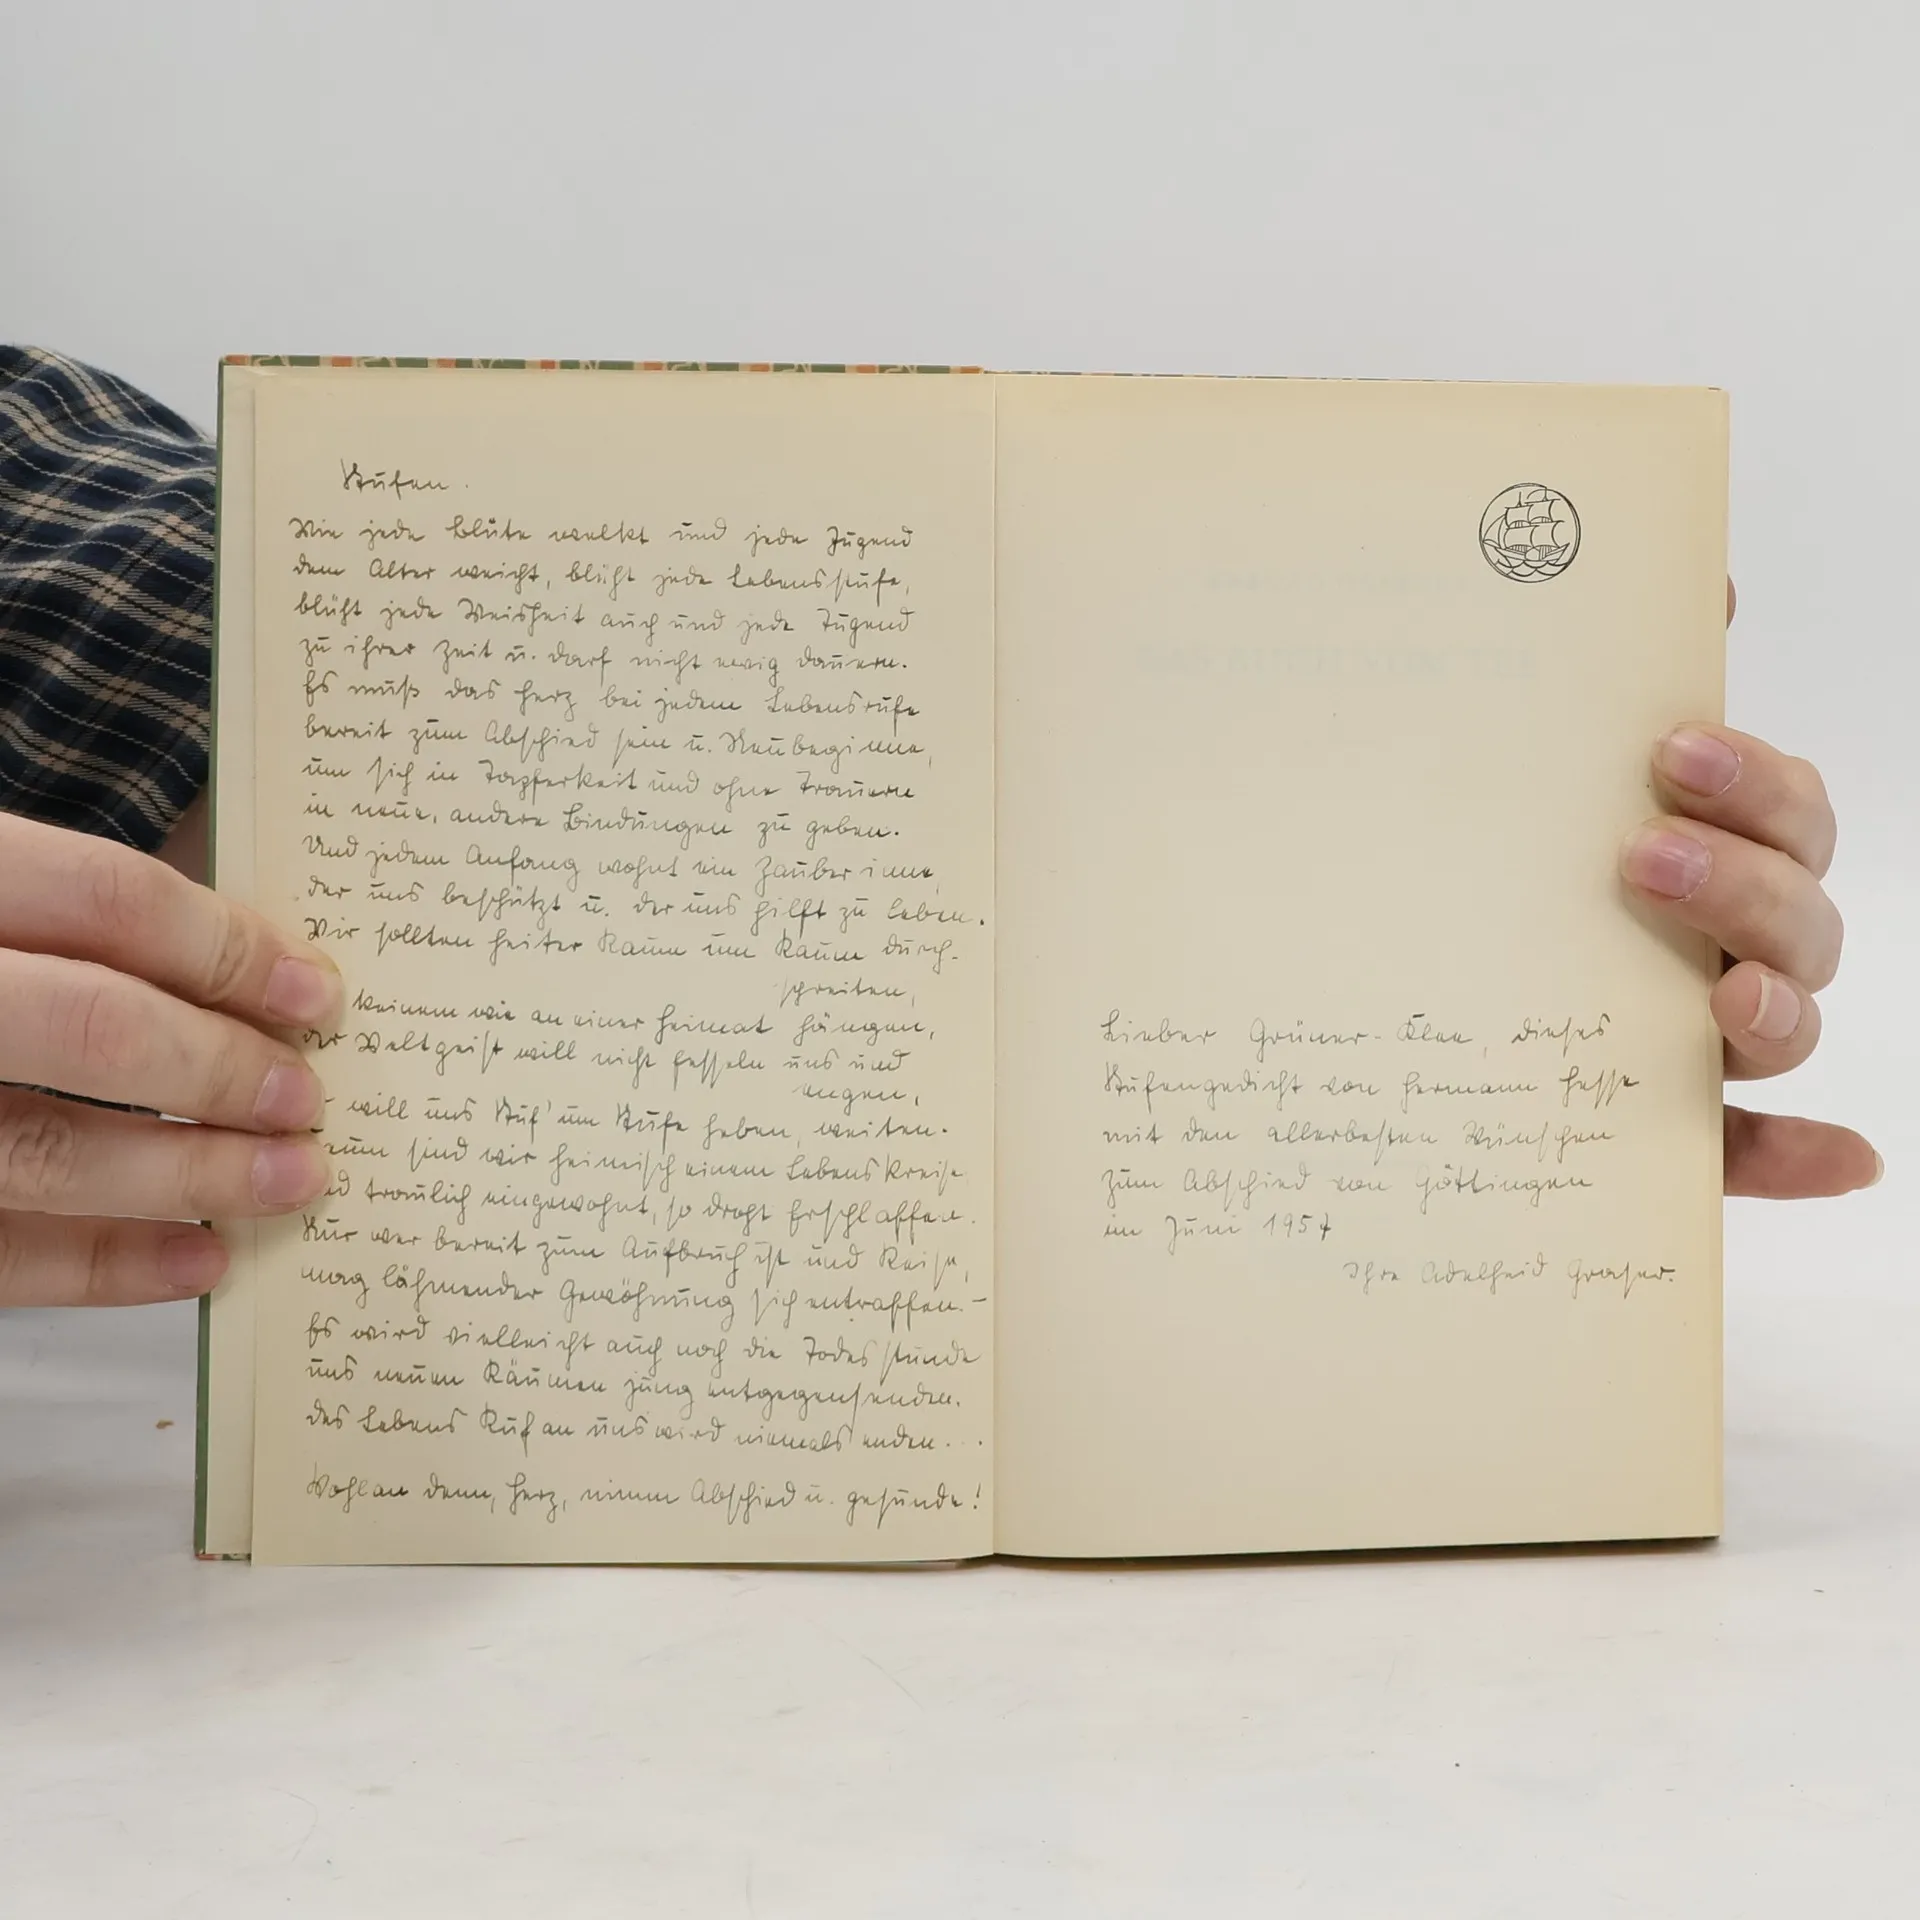 Stufen.
Wie jede Blüte welkt und jede Jugend
dem Alter weicht, blüht jede Lebensstufe,
blüht jede Weisheit auch und jede Tugend
zu ihrer Zeit u. darf nicht ewig dauern.
Es muß das Herz bei jedem Lebensrufe
bereit zum Abschied sein u. Neubeginne,
um sich in Tapferkeit und ohne Trauern
in neue, andere Bindungen zu geben.
Und jedem Anfang wohnt ein Zauber inne,
der uns beschützt u. der uns hilft zu leben.
Wir sollten heiter Raum um Raum durch-
schreiten,
keinem wie an einer Heimat hängen,
der Weltgeist will nicht fesseln uns und
engen,
will uns Stuf' um Stufe heben, weiten.
sind wir heimisch einem Lebenskreise
traulich eingewohnt, so droht Erschlaffen.
Nur wer bereit zum Aufbruch ist und Reise,
mag lähmender Gewöhnung sich entraffen. –
Es wird vielleicht auch noch die Todesstunde
uns neuen Räumen jung entgegensenden.
des Lebens Ruf an uns wird niemals enden...
Wohlan denn, Herz, nimm Abschied u. gesunde!
Lieber Grüner-Klee, dieses
Stufengedicht von Hermann Hesse
mit den allerbesten Wünschen
zum Abschied von Göttingen
im Juni 1957
Ihre Adelheid Graser.